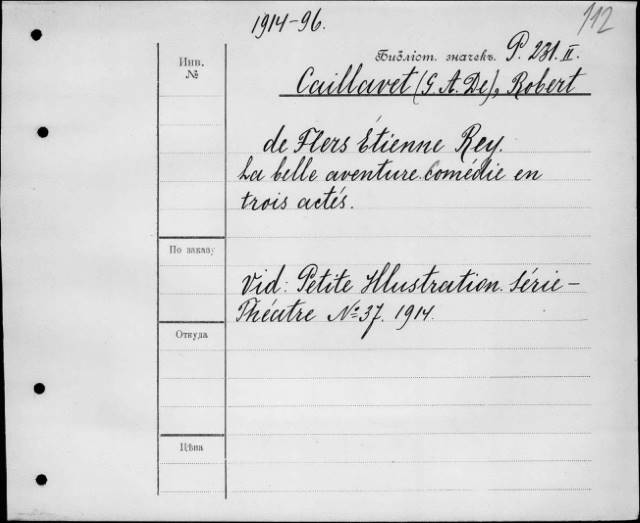 1914-96.
112
Инв.
№
Библіот. значекъ P. 231. II.
Caillavet (G. A. De), Robert
de Flers Étienne Rey.
La belle aventure. Comédie en
trois actés.
По заказу
Vid: Petite Illustration. Série-
Théatre № 37. 1914.
Откуда
Цѣна